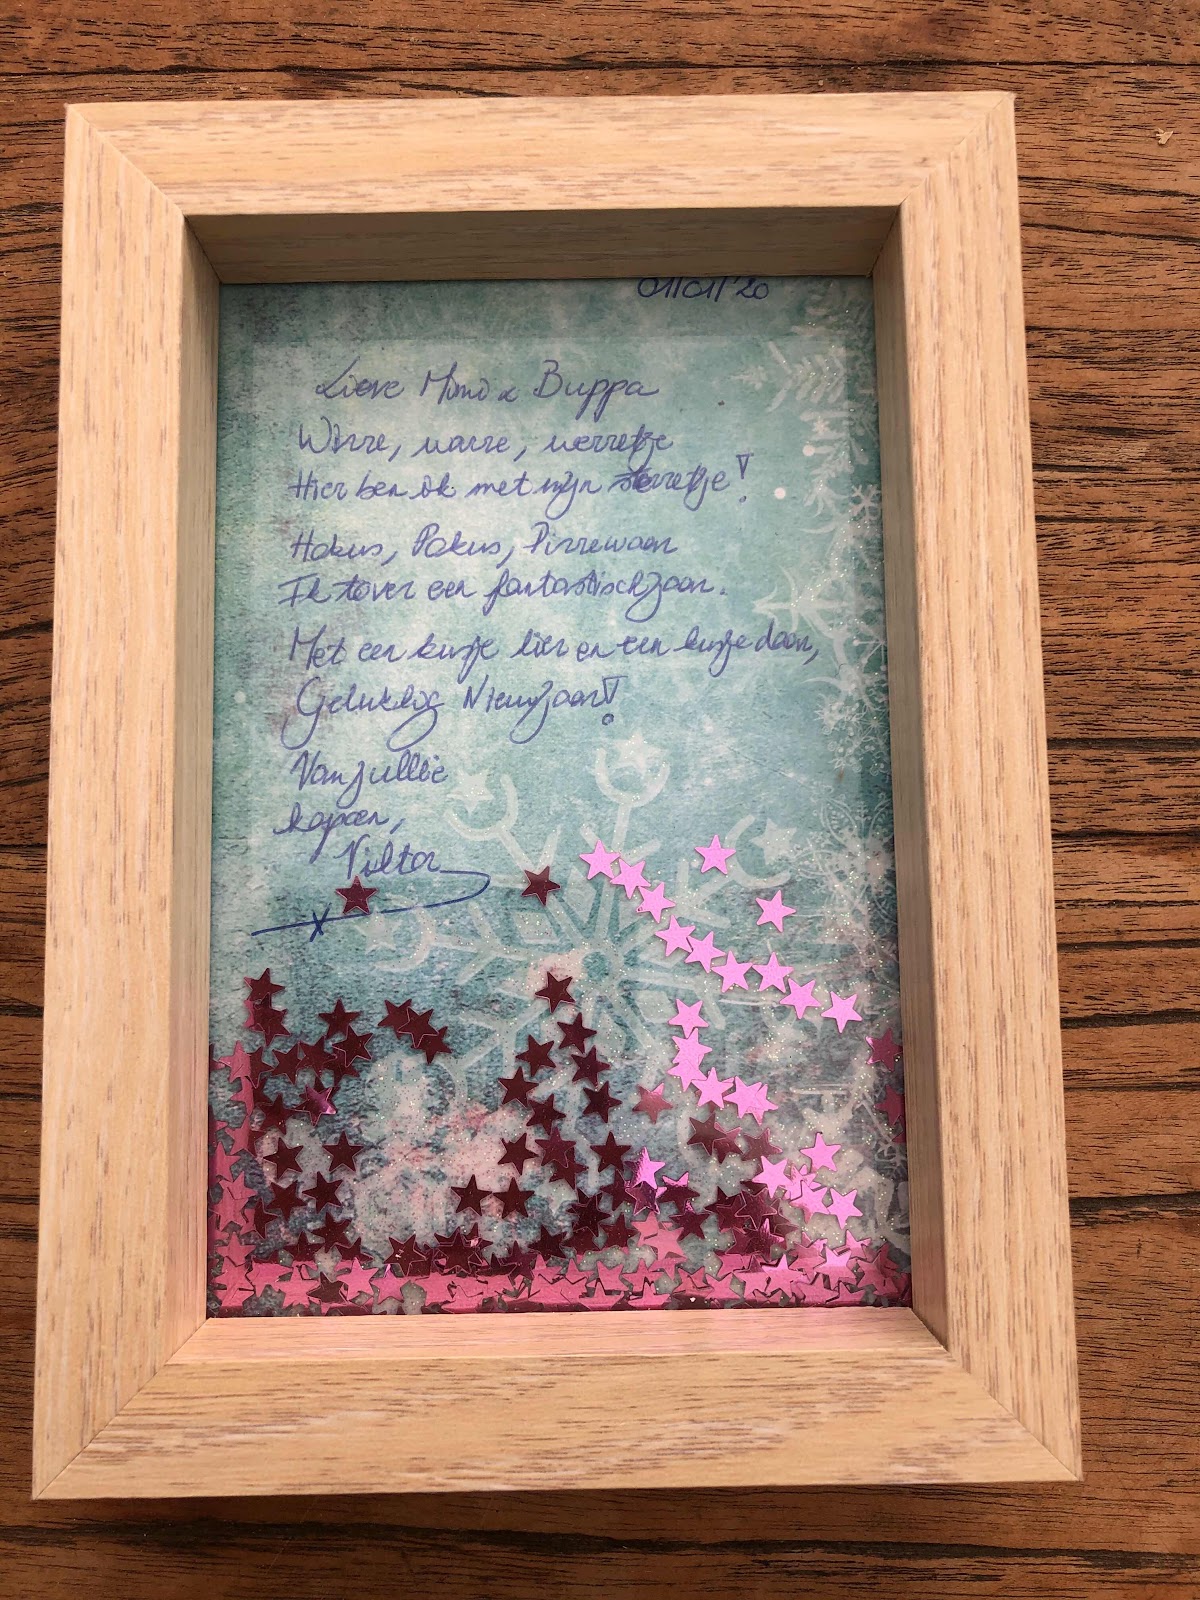 01/01/'20
Lieve Mimi & Buppa
Wirre, warre, werretje
Hier ben ik met mijn sterretje!
Hokus, Pokus, Pirrewaar
Ik tover een fantastisch jaar.
Met een kusje hier en een kusje daar,
Gelukkig Nieuwjaar!
Van jullie
kapoen,
Viktor